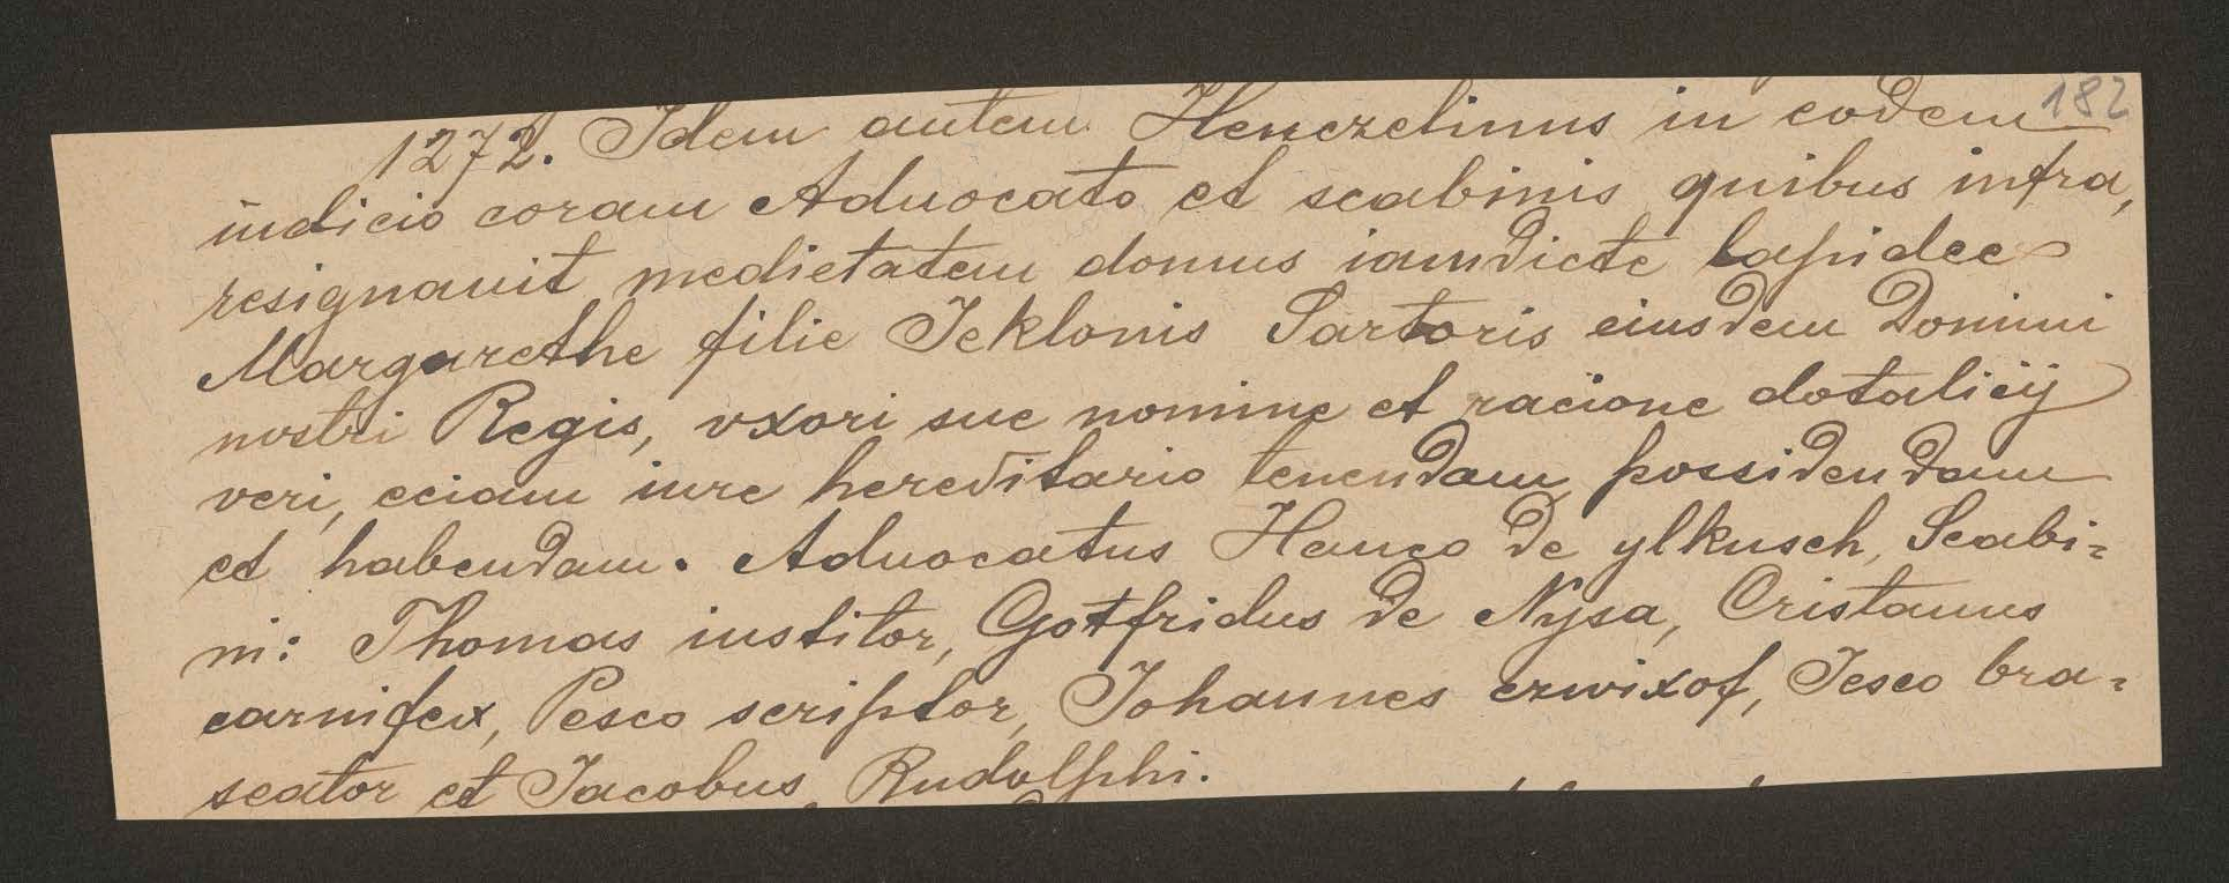 182
1272. Idem autem Henczelinus in eodem
iudicio coram Aduocato et scabinis quibus infra,
resignauit medietatem domus iamdicte lapidee
Margarethe filie Jeklonis Sartoris eiusdem Domini
nostri Regis, vxori sue nomine et racione dotalicij
veri, eciam iure hereditario tenendam, possidendam
et habendam. Aduocatus Hanco de ylkusch, Scabi-
ni: Thomas institor, Gotfridus de Nysa, Cristanus
carnifex, Pesco scriptor, Johannes czwixof, Jesco bra-
seator et Jacobus Rudolphi.